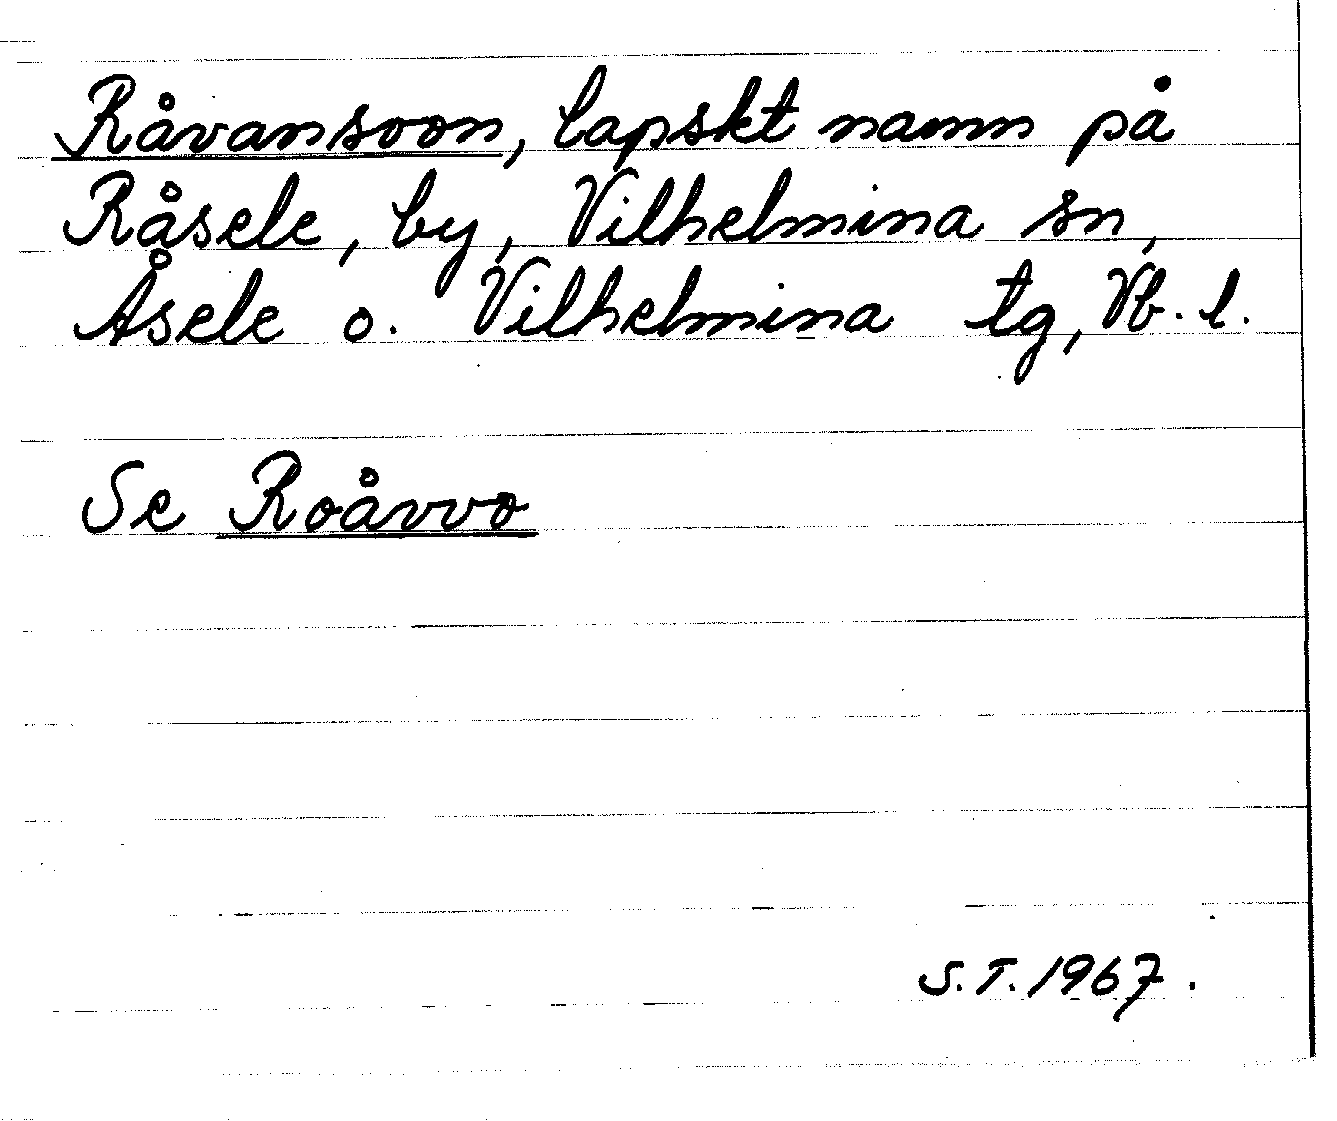 Råvansoon, lapskt namn på
Råsele, by, Vilhelmina sn,
Åsele o. Vilhelmina tg, Vb. l.
Se Roåvvo
S.T. 1967.